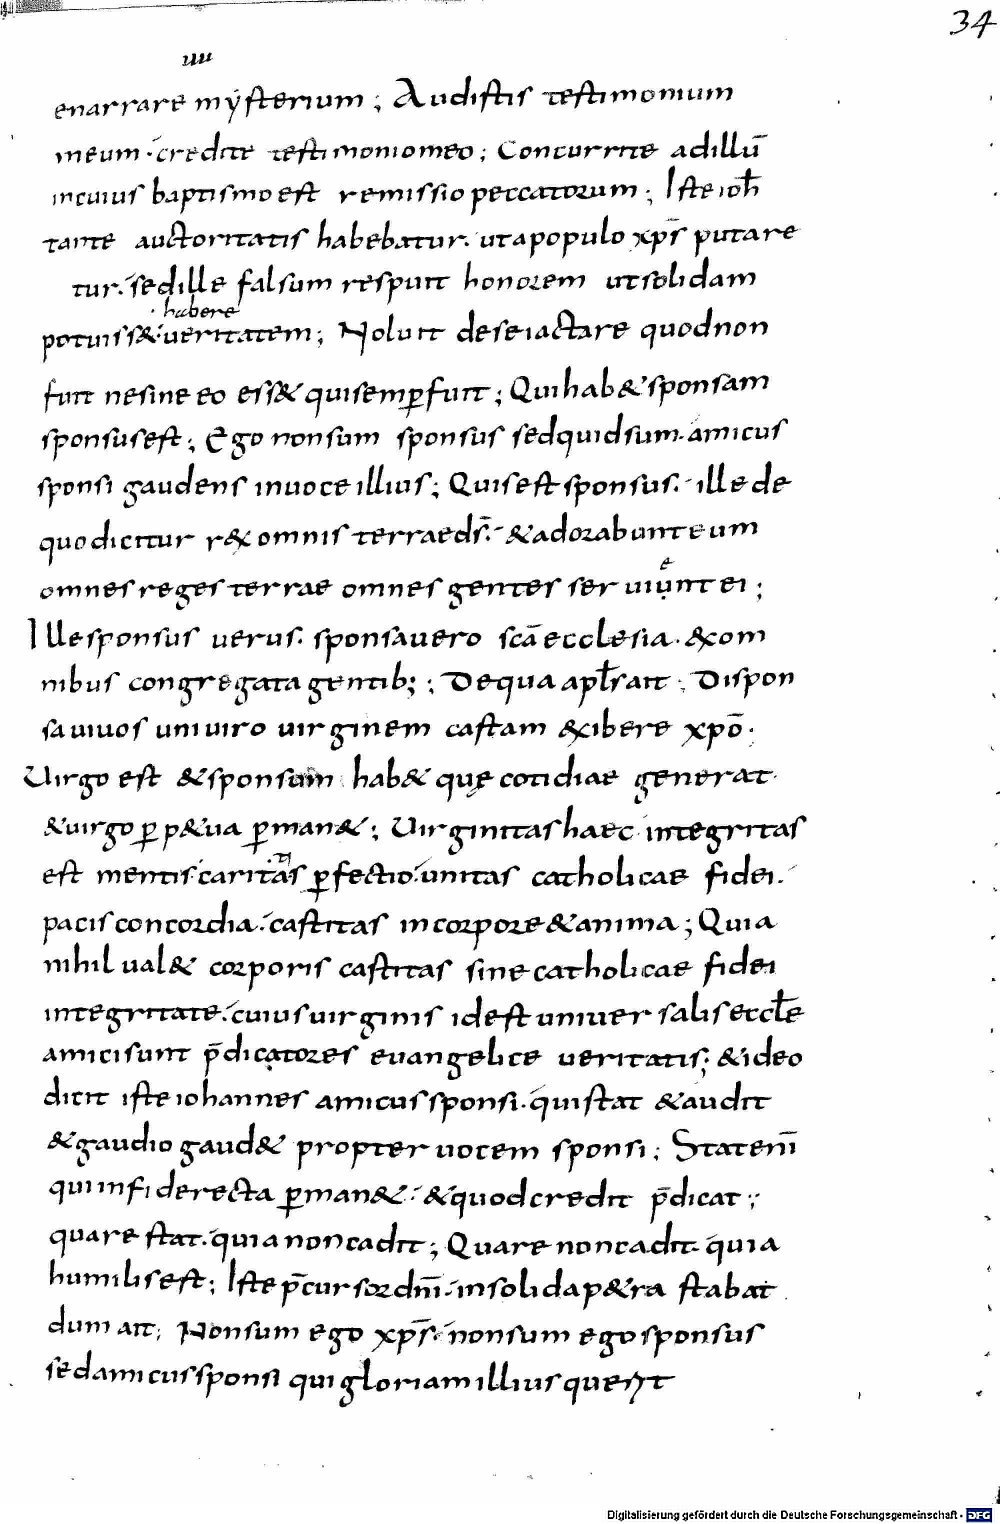 34
uu
enarrare mysterium; Audistis testimonium
meum. credite testimonio meo; Concurrite ad illū
in cuius baptismo est remissio peccatorum; Iste ioħ
tante auctoritatis habebatur. ut a populo xp̄s putare
tur. sed ille falsum respuit honorem ut solidam
habere
potuiss& ueritatem; Noluit de se iactare quod non
fuit ne sine eo ess& qui semp̲ fuit; Qui hab& sponsam
sponsus est; Ego non sum sponsus sed quid sum. amicus
sponsi gaudens in uoce illius; Quis est sponsus. ille de
quo dicitur r&x omnis terrae ds̄. & adorabunt eum
e
omnes reges terrae omnes gentes seruiụnt ei;
Ille sponsus uerus. sponsa uero sc̄a ecclesia. &x om
nibus congregata gentib;; De qua apłs ait; Dispon
sa uiuos uni uiro uirginem castam &xibere xpō.
Uirgo est & sponsum hab& quę cotidiae generat.
& uirgo p̲p&ua p̲man&; Uirginitas haec integritas
est mentis. caritas p̲fectio. unitas catholicae fidei.
pacis concordia. castitas in corpore & anima; Quia
nihil ual& corporis castitas sine catholicae fidei
integritate. cuius uirginis id est uniuersalis eccłe
amici sunt p̄dicatores euangelice ueritatis; & ideo
dicit iste iohannes amicus sponsi. qui stat & audit
& gaudio gaud& propter uocem sponsi; Stat enī
qui in fide recta p̲man&. & quod credit p̄dicat;
quare stat. quia non cadit; Quare non cadit. quia
humilis est; Iste p̄cursor dn̄i. in solida p&ra stabat
dum ait; Non sum ego xp̄s. non sum ego sponsus
sed amicus sponsi qui gloriam illius querit
Digitalisierung gefördert durch die Deutsche Forschungsgemeinschaft - DFG